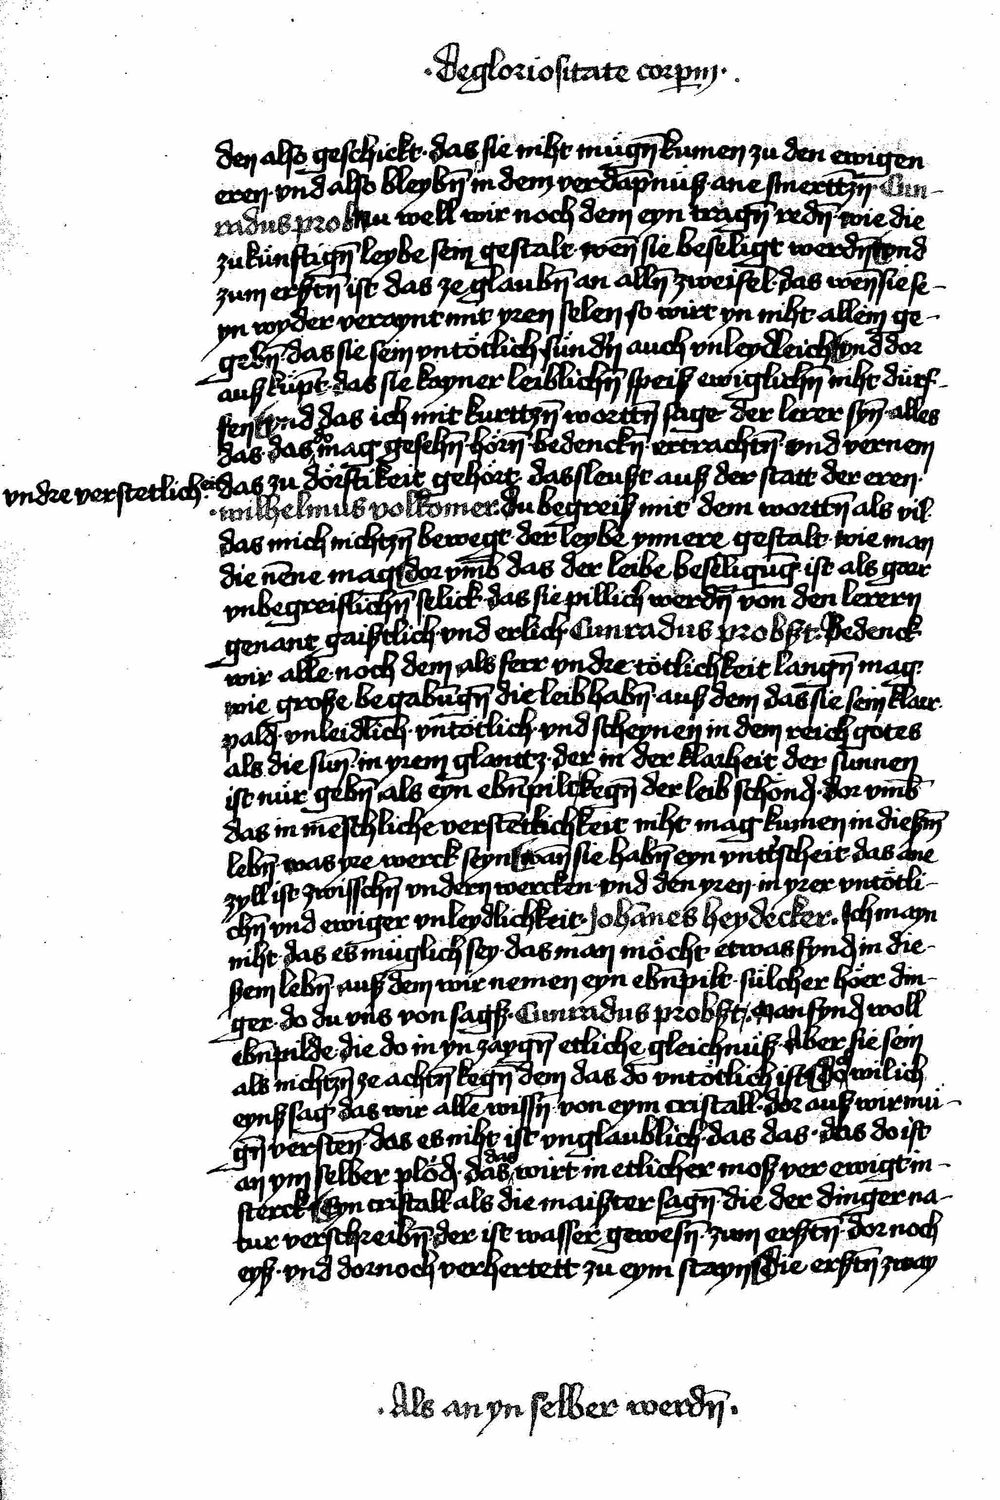 ·De gloriositate corpm·
den also geschickt· das sie niht mügn̄ kumen zu den ewigen
eren· vnd also bleybn̄ in dem verdāpnüß· ane smerttzn̄· Cun-
radus probst Nu well wir noch dem eyn tragn̄ redn̄· wie die
zukünftign̄ leybe sein gestalt· wen̄ sie beseligt werdn̄ vnd
zum erstn̄ ist das ze glaubn̄ an alln̄ zweifel· das wen̄ sie se-
yn wyder veraynt mit yren selen· so wirt yn niht allein ge-
gebn̄· das sie sein vntötlich· sündn̄ auch vnleydleich vnd dor
auß küpt· das sie kayner leiblichn̄ speiß ewiglichn̄ niht dürf-
fen vnd das ich mit kurttzn̄ worttn̄ sage der lerer syn̄· alles
das· das do mag gesehn̄· hörn̄· bedenckn̄· ertrachtn̄· vnd vernem
vndre verstetlicheit das zu dörftikeit gehört· das sleust auß der statt der eren·
·wilhelmus volkomer· du begreifst mit dem worttn̄ als vil·
das mich nichtzn̄ bewegt· der leybe ynnere gestalt· wie man
die nēne mag dor vmb das der leibe beseligūg· ist als gar
vnbegreiflichn̄ selick· das sie pillich werdn̄ von den lerern
genant gaistlich· vnd erlich· Cunradus probst· Bedenck
wir alle· noch dem als ferr vndre tötlichkeit langn̄ mag·
wie große begabūgn̄ die leib habn̄· auß dem das sie sein klar·
pald· vnleidlich· vntötlich· vnd scheynen in dem reich gotes
als die sun̄· in yrem glanttz· der in der klarheit der sunnen
ist nür gebn̄ als eyn ebn̄pilt kegn̄ der leib schönd· dor vmb
das in mēschliche verstetlichkeit niht mag kumen in dießm̄
lebn̄· was yre werck seyn wan̄ sie habn̄ eyn vntscheit· das ane
zyll ist zwisschn̄ vndern wercken· vnd den yren· in yrer vntötli-
chn̄ vnd ewiger vnleydlichkeit· Johānes heydecker· Ich mayn
niht· das es müglich sey· das man möcht etwas fynd in die-
ßem lebn̄· auß dem wir nemen eyn ebn̄pilt· sülcher höer din-
ger· do du vns von sagst· Cunradus probst· Man fynd woll
ebn̄pilde· die do in yn zaygn̄ etliche gleichnüß· Aber sie sein
als nichtzn̄ ze achtn̄ kegn̄ dem das do vntötlich ist do wil ich
eynß sag· das wir alle wissn̄· von eym cristall· dor auß wir mü-
gn̄ versten̄· das es niht ist vnglaublich· das das· das do ist
an ym selber plöd· das das wirt in etlicher moß ver ewigt in-
sterck Eyn cristall· als die maister sagn̄· die der dinger na-
tur verschreibn̄· der ist wasser gewesn̄· zum erstn̄· dor noch
eyß· vnd dornoch verhertett zu eym stayn Die erstn̄ zway
·Als an yn selber werdn̄·